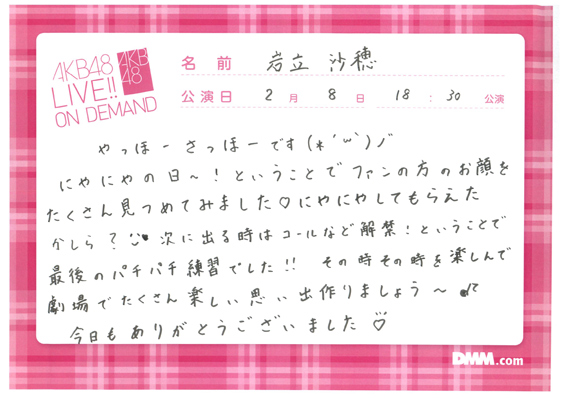 AKB48
LIVE!!
ON DEMAND
AKB
48
名前 岩立 沙穂
公演日 2月 8日 18:30 公演
やっほーさっほーです(*'ω')ノ
にやにやの日〜!ということでファンの方のお顔を
たくさん見つめてみました♡にやにやしてもらえた
かしら? 次に出る時はコールなど解禁!ということで
最後のパチパチ練習でした!! その時その時を楽しんで
劇場でたくさん楽しい思い出作りましょう〜
今日もありがとうございました♡
DMM.com